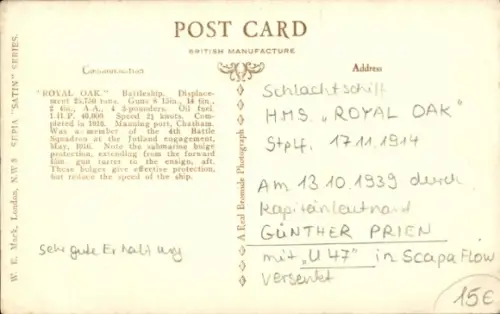 POST CARD
BRITISH MANUFACTURE
Communication
Address
"ROYAL OAK." Battleship. Displace-
ment 25,750 tons. Guns 8 15in., 14 6in.,
2 4in., A.A., 4 3-pounders. Oil fuel.
I.H.P. 40,000 Speed 21½ knots. Com-
pleted in 1916. Manning port, Chatham.
Was a member of the 4th Battle
Squadron at the Jutland engagement,
May, 1916. Note the submarine bulge
protection, extending from the forward
15in gun turret to the ensign, aft.
These bulges give effective protection,
but reduce the speed of the ship.
Sehr gute Erhaltung
W. E. Mack, London, N.W.3 SEPIA "SATIN" SERIES.
A Real Bromide Photograph
Schlachtschiff
HMS „ROYAL OAK"
Stplf. 17.11.1914
Am 13.10.1939 durch
Kapitänleutnant
GÜNTHER PRIEN
mit „U 47" in Scapa Flow
versenkt
15€